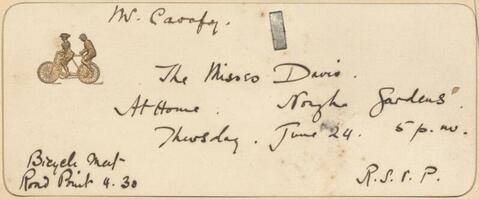 Mr. Cavafy.
The Misses Davis.
At Home. Gardens.
Thursday. June 24. 5 p.m.
Bicycle Meet
Rond Point 4.30
R.S.V.P.